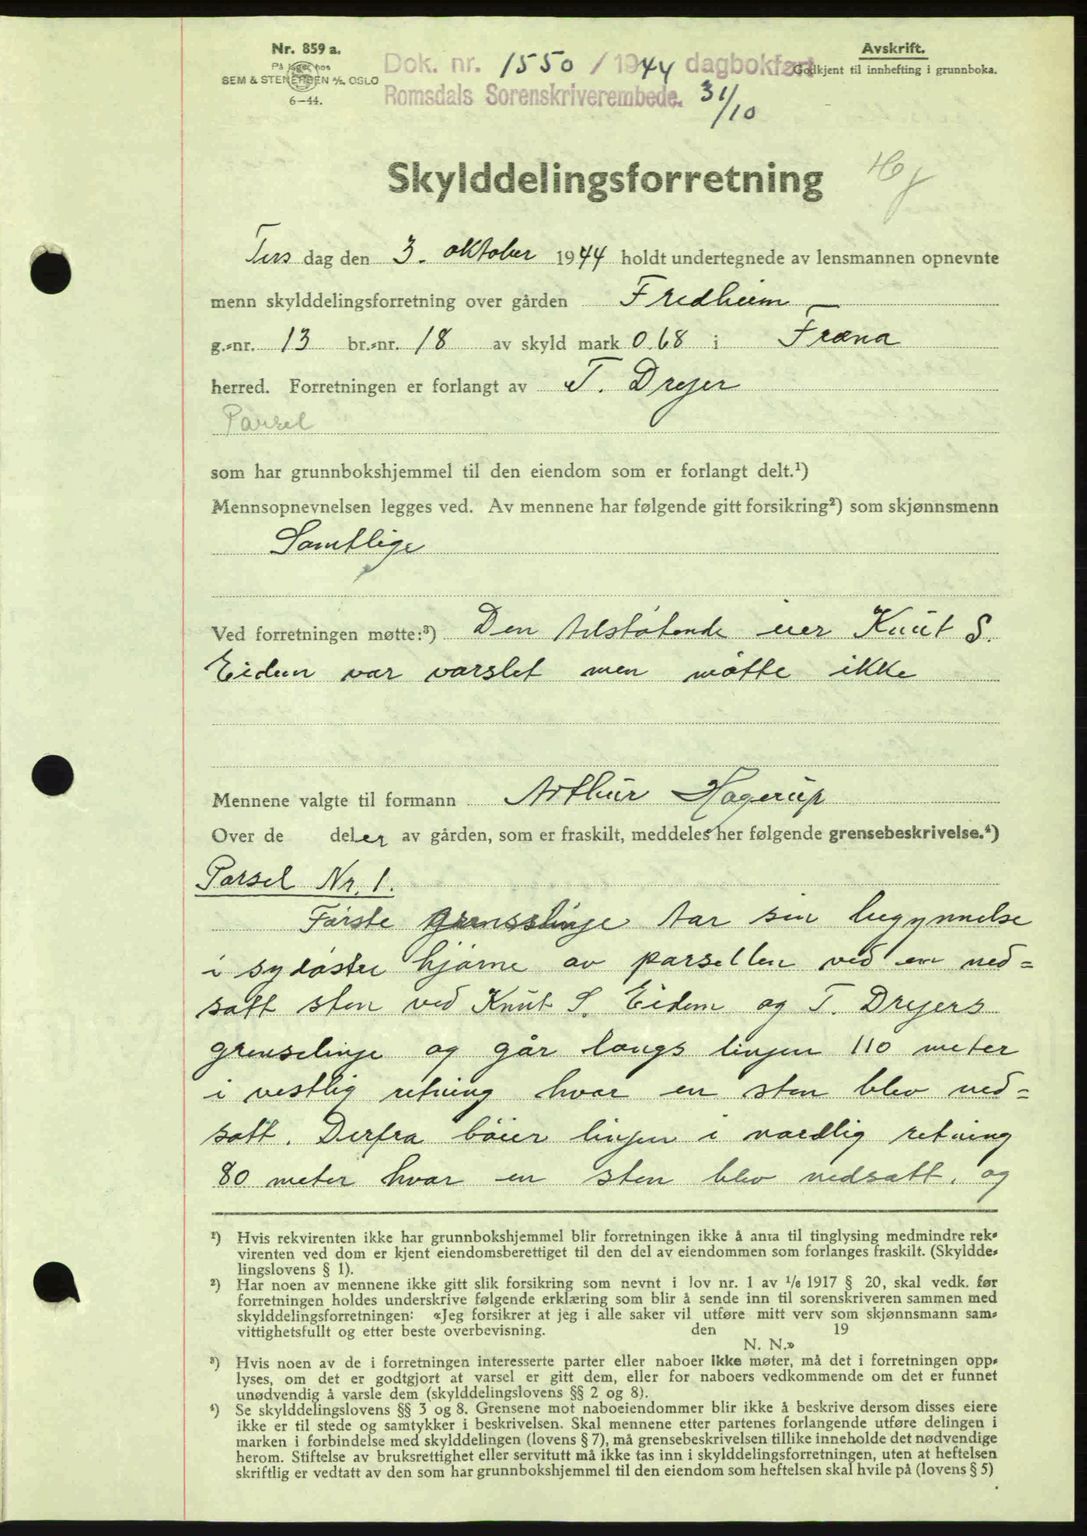 Nr. 859 a.
På lager hos
SEM & STENERSEN A/S, OSLO
6—44.
Dok. nr. 1550 / 1944 dagbokført
Romsdals Sorenskriverembede. 31/10
Avskrift.
Godkjent til innhefting i grunnboka.
Skylddelingsforretning
Tirs dag den 3. oktober 1944 holdt undertegnede av lensmannen opnevnte
menn skylddelingsforretning over gården Fredheim
g.-nr. 13 br.-nr. 18 av skyld mark 0.68 i Fræna
herred. Forretningen er forlangt av T. Dryer
Parsel
som har grunnbokshjemmel til den eiendom som er forlangt delt.¹)
Mennsopnevnelsen legges ved. Av mennene har følgende gitt forsikring²) som skjønnsmenn
Samtlige
Ved forretningen møtte:³) Den tilstøtende eier Knut S.
Eidem var varslet men møtte ikke
Mennene valgte til formann Arthur Hagerup
Over de deler av gården, som er fraskilt, meddeles her følgende grensebeskrivelse.⁴)
Parsel Nr. 1.
Første grensslinje tar sin begynnelse
i sydøstre hjørne av parsellen ved en ned=
satt sten ved Knut S. Eidem og T. Dryers
grenselinje og går langs linjen 110 meter
i vestlig retning hvor en sten blev ned=
satt. Derfra bøier linjen i nordlig retning
80 meter hvor en sten blev nedsatt. og
¹) Hvis rekvirenten ikke har grunnbokshjemmel blir forretningen ikke å anta til tinglysing medmindre rek-
virenten ved dom er kjent eiendomsberettiget til den del av eiendommen som forlanges fraskilt. (Skyldde-
lingslovens § 1).
²) Har noen av mennene ikke gitt slik forsikring som nevnt i lov nr. 1 av ¹/₆ 1917 § 20, skal vedk. før
forretningen holdes underskrive følgende erklæring som blir å sende inn til sorenskriveren sammen med
skylddelingsforretningen: «Jeg forsikrer at jeg i alle saker vil utføre mitt verv som skjønnsmann sam-
vittighetsfullt og etter beste overbevisning. den 19
N. N.»
³) Hvis noen av de i forretningen interesserte parter eller naboer ikke møter, må det i forretningen opp-
lyses, om det er godtgjort at varsel er gitt dem, eller for naboers vedkommende om det er funnet
unødvendig å varsle dem (skylddelingslovens §§ 2 og 8).
⁴) Se skylddelingslovens §§ 3 og 8. Grensene mot naboeiendommer blir ikke å beskrive dersom disses eiere
ikke er til stede og samtykker i beskrivelsen. Skal mennene etter partenes forlangende utføre delingen i
marken i forbindelse med skylddelingen (lovens § 7), må grensebeskrivelsen tillike inneholde det nødvendige
herom. Stiftelse av bruksrettighet eller servitutt må ikke tas inn i skylddelingsforretningen, uten at heftelsen
skriftlig er vedtatt av den som har grunnbokshjemmel til den eiendom som heftelsen skal hvile på (lovens § 5)